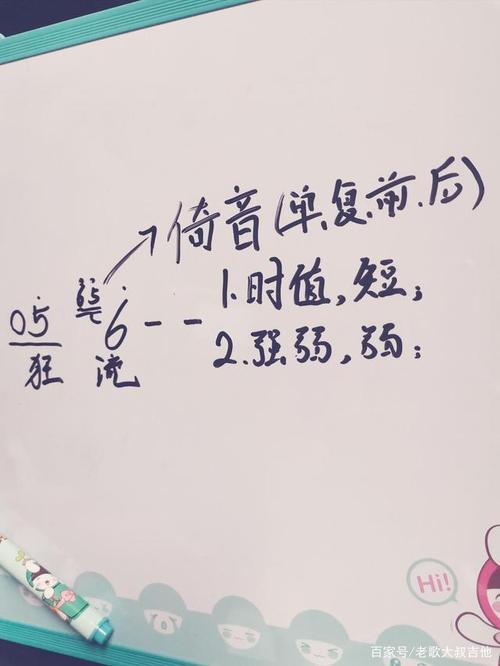 倚音(单.复.前.后)
1.时值,短;
5 6 - -
05
2.强弱,弱;
狂 流
Hi!
百家号/老歌大叔吉他